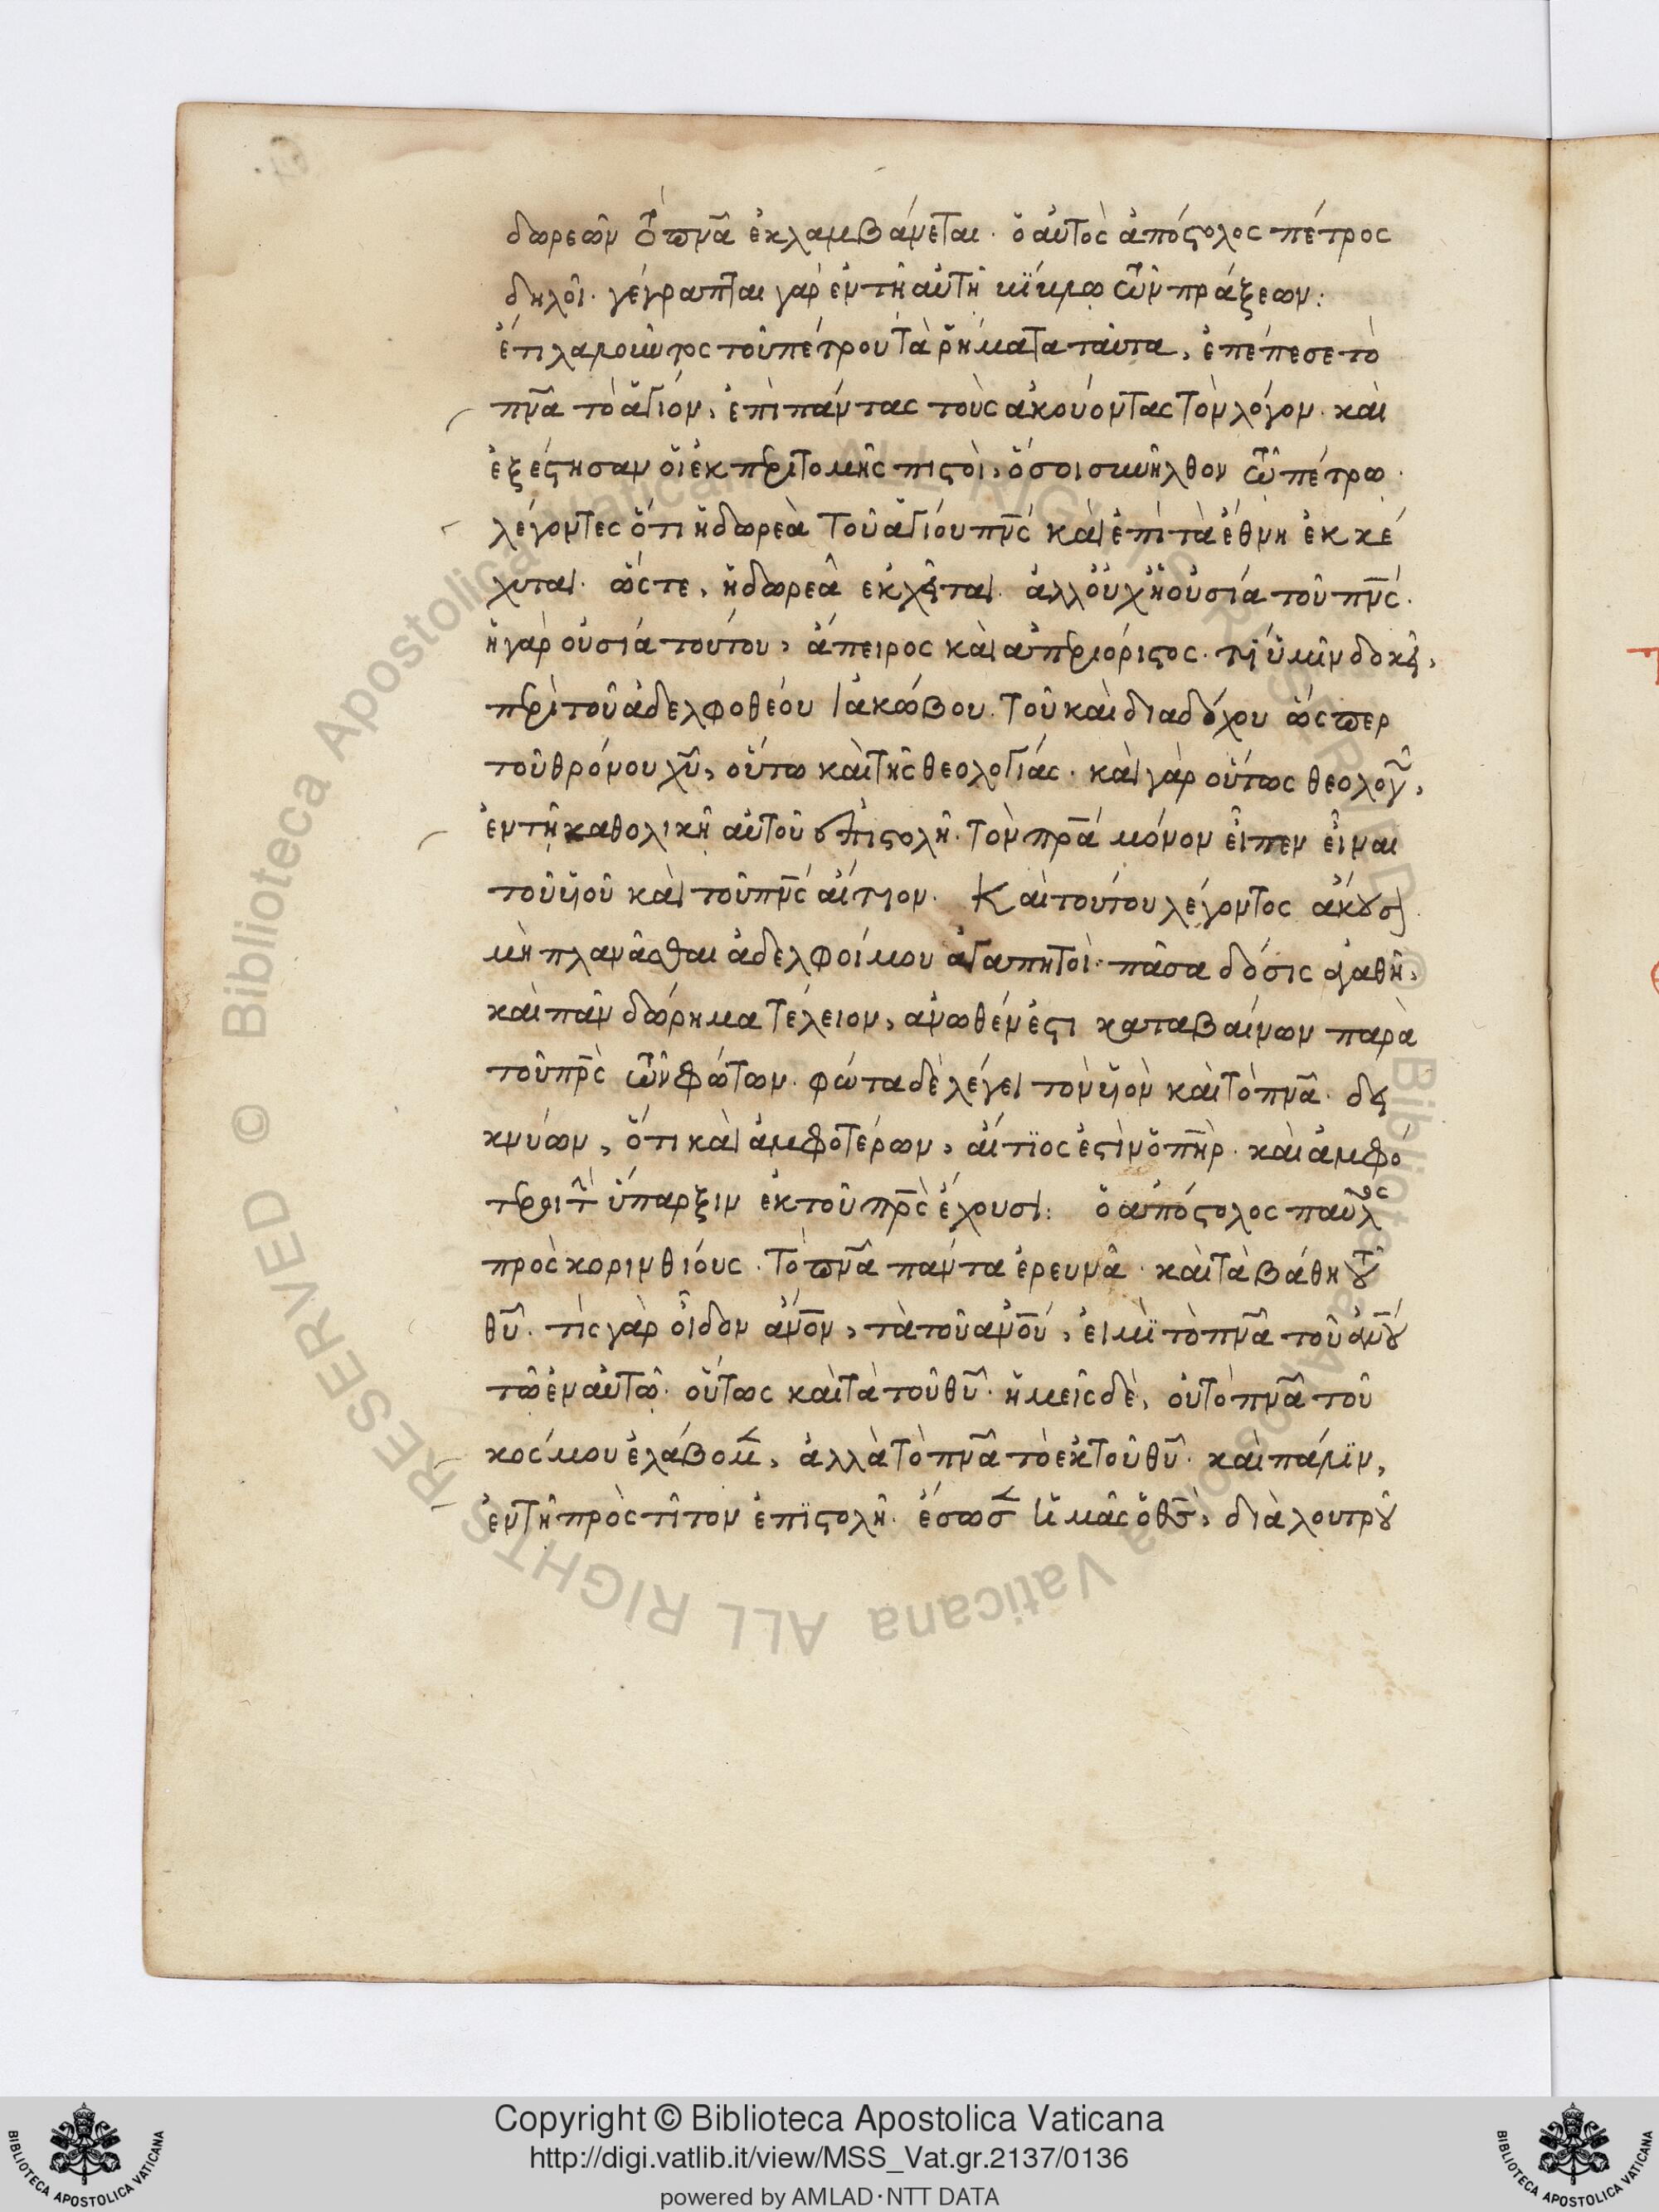 δωρεῶν τὸ πνᾶ ἐκλαμβάνεται· ὁ αὐτὸς ἀπόστολος πέτρος
δηλοῖ· γέγραπται γὰρ ἐν τῆ αὐτῆ βίβλω τῶν πράξεων:
ἔτι λαλοῦντος τοῦ πέτρου τὰ ῥήματα ταῦτα, ἐπέπεσε τὸ
πνᾶ τὸ ἅγιον, ἐπὶ πάντας τοὺς ἀκούοντας τὸν λόγον· καὶ
ἐξέστησαν οἱ ἐκ περιτομῆς πιστοὶ, ὅσοι συνῆλθον τῶ πέτρω·
λέγοντες ὅτι ἡ δωρεὰ τοῦ ἁγίου πνς καὶ ἐπὶ τὰ ἔθνη ἐκκέ
χυται· ὥστε, ἡ δωρεὰ ἐκχεῖται· ἀλλ οὐχ ἡ οὐσία τοῦ πνς·
ἡ γὰρ οὐσία τούτου, ἄπειρος καὶ ἀπεριόριστος· τί ὑμῖν δοκεῖ,
περὶ τοῦ ἀδελφοθέου ἰακώβου· τοῦ καὶ διαδόχου ὥσπερ
τοῦ θρόνου χυ, οὕτω καὶ τῆς θεολογίας· καὶ γὰρ οὕτως θεολογῶν,
ἐν τῆ καθολικῆ αὐτοῦ ἐπιστολῆ· τὸν πρα μόνον εἶπεν εἶναι
τοῦ υἱοῦ καὶ τοῦ πνς αἴτιον· Καὶ τούτου λέγοντος ἄκουσον·
μὴ πλανᾶσθαι ἀδελφοί μου ἀγαπητοί· πᾶσα δόσις ἀγαθὴ,
καὶ πᾶν δώρημα τέλειον, ἄνωθέν ἐστι καταβαίνων παρὰ
τοῦ πρς τῶν φώτων· φῶτα δὲ λέγει τὸν υἱὸν καὶ τὸ πνᾶ· δει
κνύων, ὅτι καὶ ἀμφοτέρων, αἴτιος ἐστὶν ὁ πηρ· καὶ ἀμφό
τεροι τὴν ὕπαρξιν ἐκ τοῦ πρς ἔχουσι: ὁ ἀπόστολος παῦλος
πρὸς κορινθίους· τὸ πνᾶ πάντα ἐρευνᾶ· καὶ τὰ βάθη τοῦ
θυ· τίς γὰρ οἶδεν ἀνον, τὰ τοῦ ἀνου, εἰ μὴ τὸ πνᾶ τοῦ ἀνου
τῶ ἐν αὐτῶ· οὕτως καὶ τὰ τοῦ θυ· ἡμεῖς δὲ, οὐ τὸ πνᾶ τοῦ
κόσμου ἐλάβομεν, ἀλλὰ τὸ πνᾶ τὸ ἐκ τοῦ θυ· καὶ πάλιν,
ἐν τῆ πρὸς τίτον ἐπιστολῆ· ἔσωσεν ἡμᾶς ὁ θς, διὰ λουτροῦ
Copyright © Biblioteca Apostolica Vaticana
http://digi.vatlib.it/view/MSS_Vat.gr.2137/0136
powered by AMLAD·NTT DATA